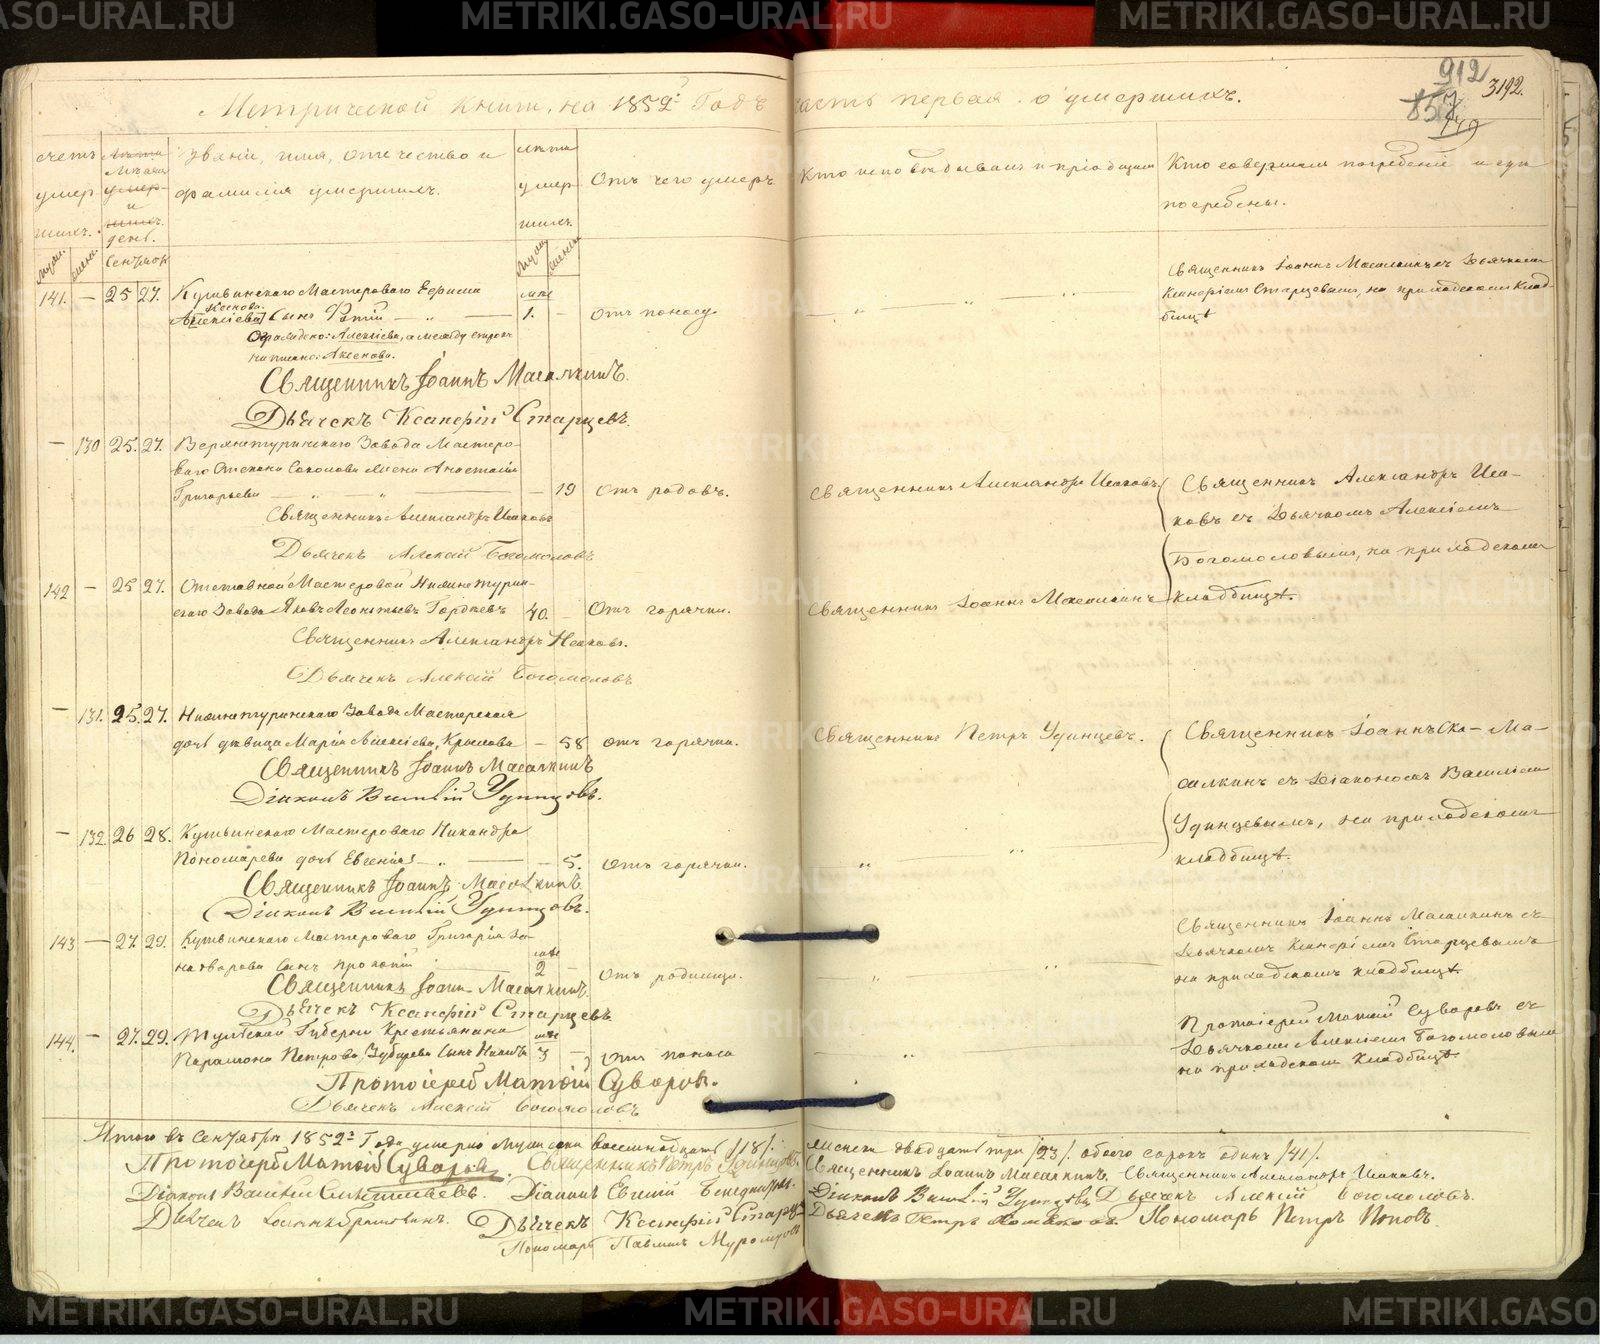 METRIKI.GASO-URAL.RU
Метрической книги, на 1852й Годъ часть первая о умершихъ.
912
857
779
3192.
счетъ умер шихъ.
муж. женс.
Мѣсяцъ и день.
Сентябрь
Званіе, имя, отчество и
фамилія умершихъ.
лѣта умер шихъ.
муж женск
Отъ чего умеръ
Кто исповѣдывалъ и пріобщалъ
Кто совершалъ погребеніе и гдѣ
погребены.
141. — 25 27. Кушвинскаго Мастероваго Ефима
Аксенова
Алексѣева Сынъ Фотій — „ — мѣс 1. — Отъ поносу.
Оскоблено: Алексѣева, а между строкъ
написано: Аксенова.
Священникъ Іоаннъ Масалкинъ.
Дьячекъ Ксанфій Старцевъ.
Священникъ Іоаннъ Масалкинъ съ Дьячкомъ
Ксанфіемъ Старцевымъ, на приходскомъ Клад-
бищѣ
— 130 25. 27. Верхнетуринскаго Завода Мастеро-
ваго Степана Соколова жена Анастасія
Григорьева — „ — „ — 19 Отъ родовъ.
Священникъ Александръ Исаковъ
Дьячекъ Алексѣй Богомоловъ
Священникъ Александръ Исаковъ.
Священникъ Александръ Иса-
ковъ съ Дьячкомъ Алексѣемъ
Богомоловымъ, на приходскомъ
кладбищѣ.
142 — 25 27. Отставной Мастеровой Нижнетурин-
скаго Завода Яковъ Леонтьевъ Гордѣевъ 40. — Отъ горячки.
Священникъ Александръ Исаковъ.
Дьячекъ Алексѣй Богомоловъ
Священникъ Іоаннъ Масалкинъ
— 131. 25. 27. Нижнетуринскаго Завода Мастерская
дочь дѣвица Марія Алексѣева, Крылова — 58 отъ горячки.
Священникъ Іоаннъ Масалкинъ
Діаконъ Василій Удинцовъ.
Священникъ Петръ Удинцевъ.
Священникъ Іоаннъ Ма-
салкинъ съ Діакономъ Василіемъ
Удинцевымъ, на приходскомъ
кладбищѣ.
— 132. 26 28. Кушвинскаго Мастероваго Никандра
Пономарева дочь Евгенія — „ — — 5. отъ горячки.
Священникъ Іоаннъ Масалкинъ
Діаконъ Василій Удинцовъ.
143 — 27. 29. Кушвинскаго Мастероваго Григорія По-
сынъ Прокопій мѣс 2 — Отъ родимца.
Священникъ Іоаннъ Масалкинъ.
Дьячекъ Ксанфій Старцевъ
Священникъ Іоаннъ Масалкинъ съ
Дьячкомъ Ксанфіемъ Старцевымъ
на приходскомъ кладбищѣ
144. — 27. 29. Тульской Губерніи Крестьянина
Парамона Петрова, Зубарева Сынъ мѣс 3 — Отъ поноса
Протоіерей Матѳій Суворовъ.
Дьячекъ Алексѣй Богомоловъ
Протоіерей Матѳій Суворовъ съ
Дьячкомъ Алексѣемъ Богомоловымъ
на приходскомъ Кладбищѣ
Итого въ Сентябрѣ 1852й Года умерло Мужеска восемнадцать /18/. женска двадцать три /23/. обоего сорокъ одинъ /41/.
Протоіерей Матѳій Суворовъ. Священникъ Петръ Удинцевъ. Священникъ Іоаннъ Масалкинъ. Священникъ Александръ Исаковъ.
Діаконъ Василій Діаконъ Евгеній Діаконъ Василій Удинцовъ Дьячекъ Алексѣй Богомоловъ.
Дьячекъ Дьячекъ Ксанфій Старцевъ Дьячекъ Петръ Пономарь Петръ Поповъ.
Пономарь Павлинъ